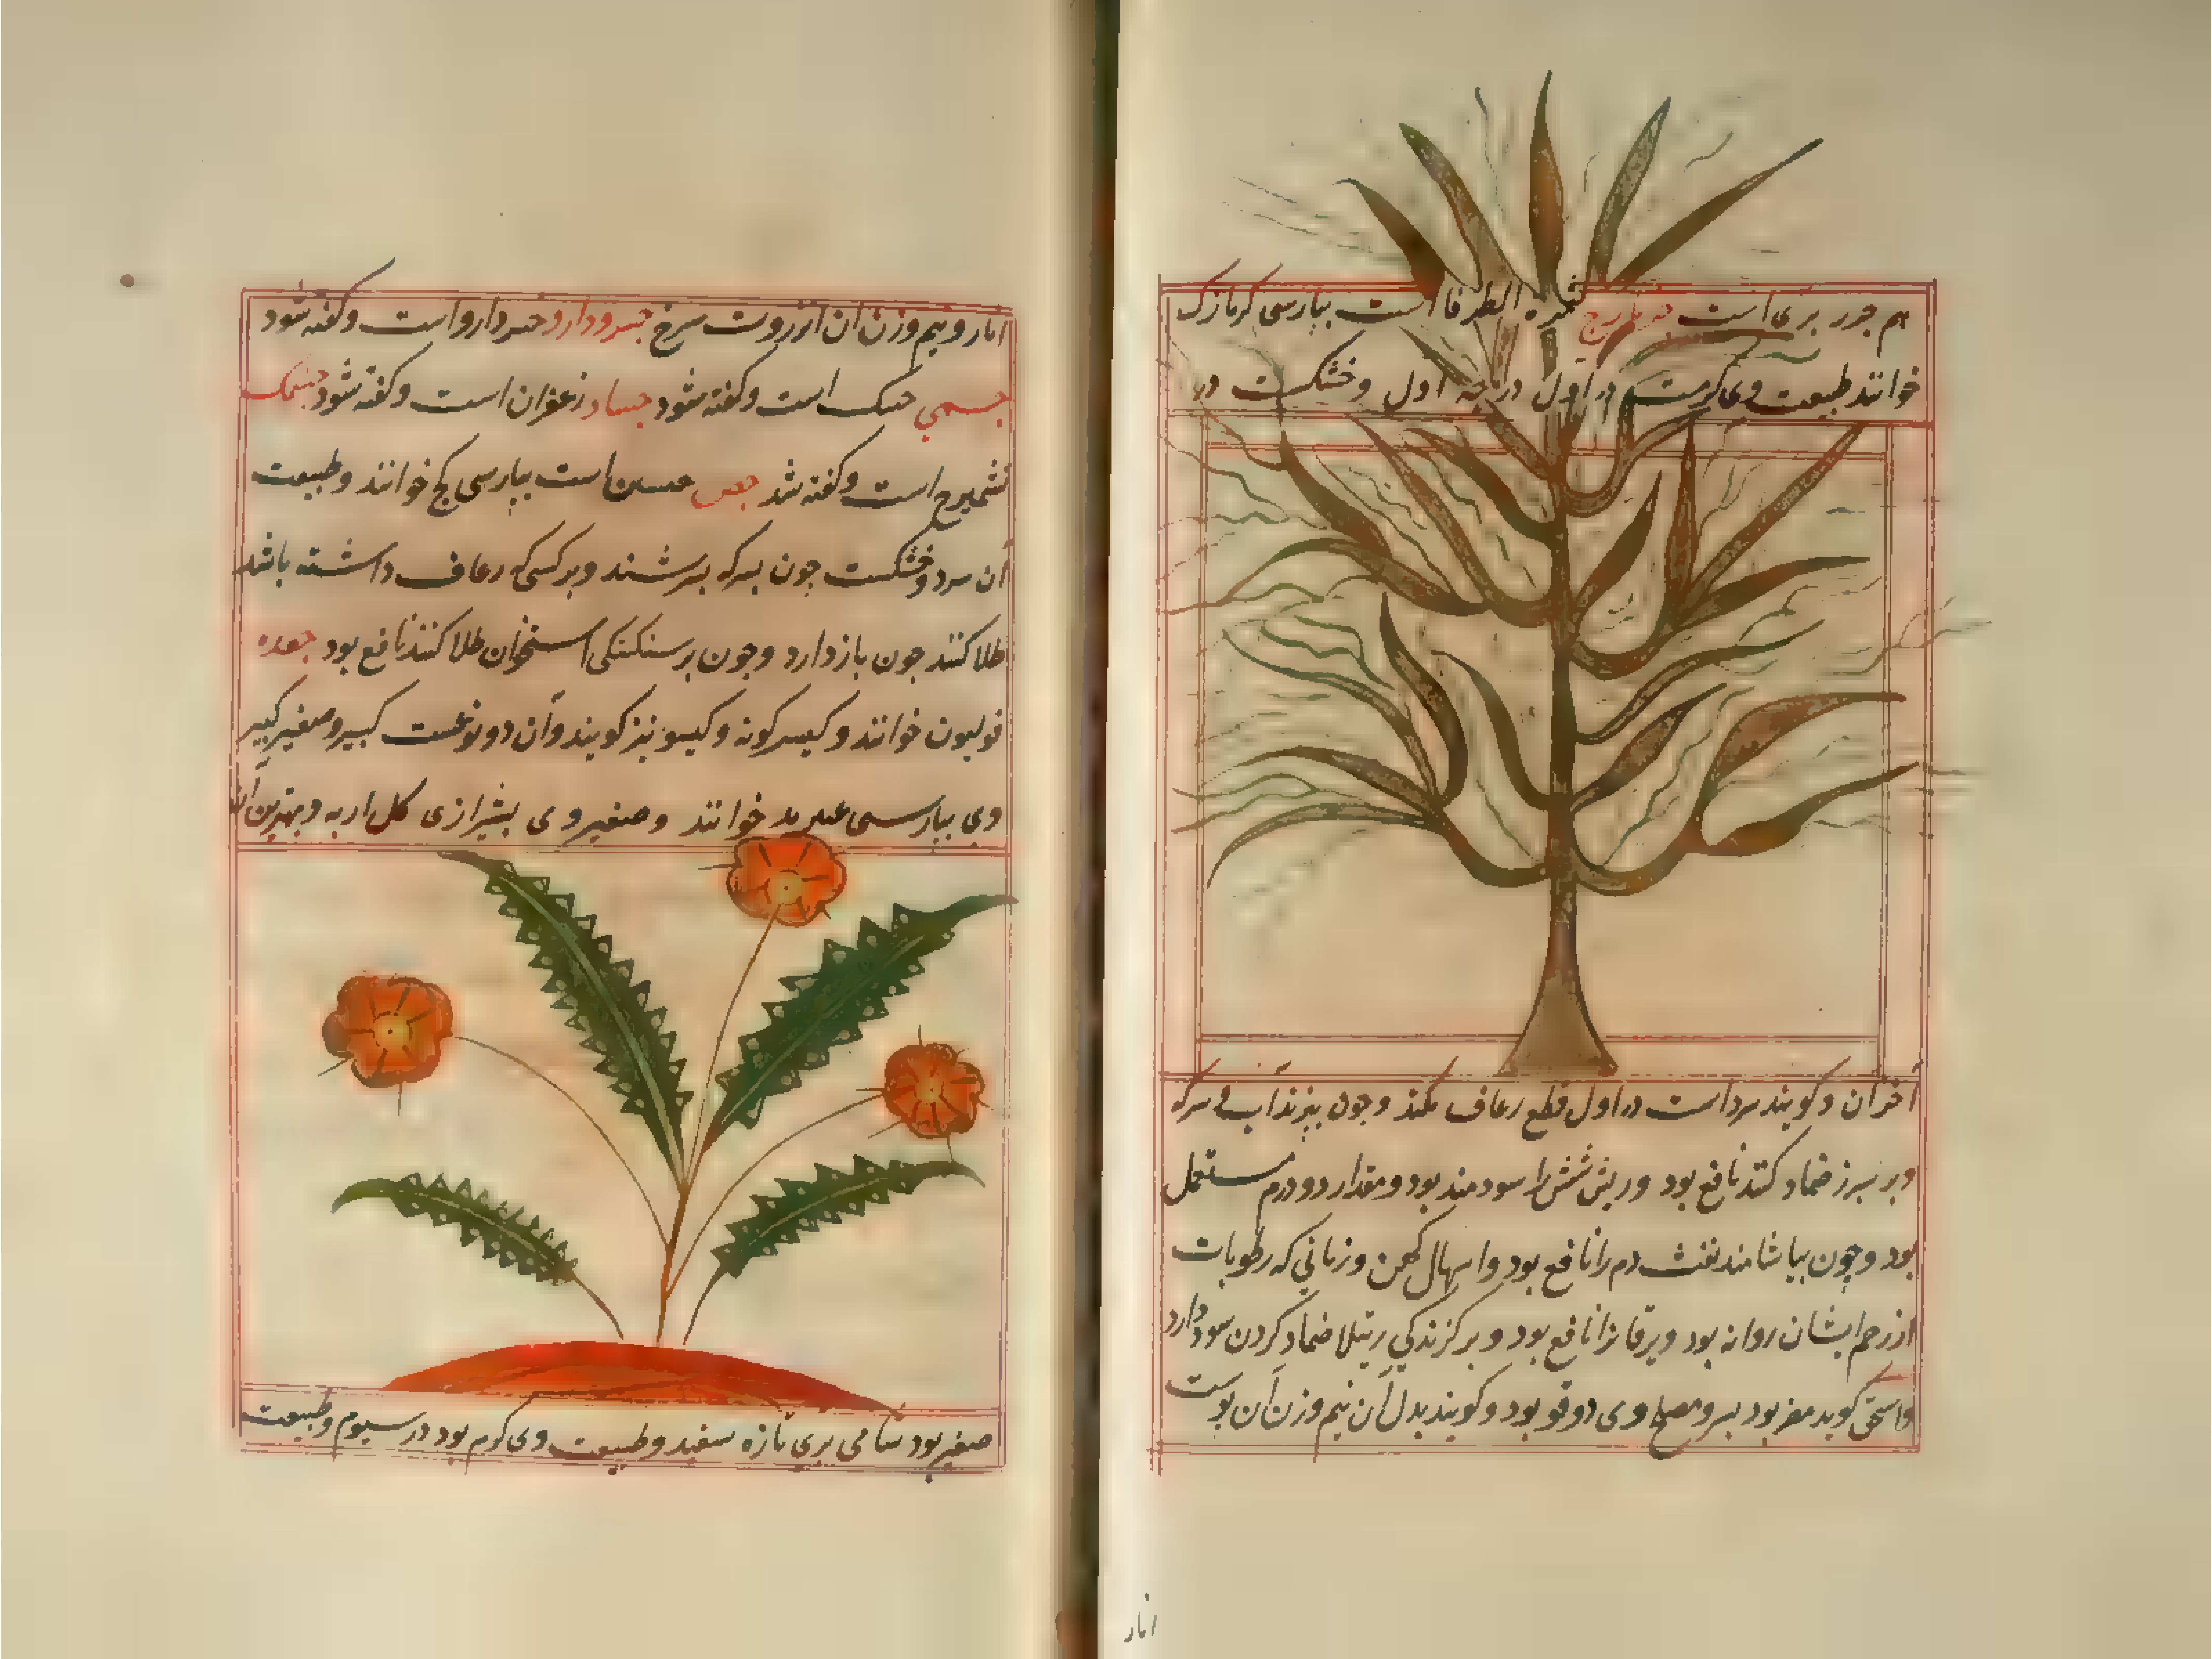 هم جزر بری است جزمازج ثمرة الطرفا است بپارسی کزمازک
خوانند طبیعت وی کرمست در اول درجه اول و خشکست در
آخر آن و کویند سرد است در اول قطع رعاف بکند و چون بپزند آب و سرکه
و بر سپرز ضماد کنند نافع بود و ریش شش را سودمند بود و مقدار دو درم مستعمل
بود و چون بیاشامند نفث دم را نافع بود و اسهال کهن و زنانی که رطوبات
از رحم ایشان روانه بود و یرقانرا نافع بود و بر کزندکی رتیلا ضماد کردن سود دارد
و اسحق کوید مضر بود بسر و مصلح وی دوقو بود و کویند بدل آن نیم وزن آن پوست
انار
انار و نیم وزن آن انزروت سرخ جسرودارو خسرودارو است و کفته شود
جسمی حسک است و کفته شود جساد زعفران است و کفته شود جشمک
تشمیزج است و کفته شد جص جبسین است بپارسی کچ خوانند و طبیعت
آن سرد و خشکست چون بسرکه بسرشند و بر کسی که رعاف داشته باشد
طلا کنند خون باز دارد و چون بر شکستکی استخوان طلا کنند نافع بود جعده
فولیون خوانند و کیسو نیز کویند و آن دو نوعست کبیر و صغیر کبیر
وی بپارسی خوانند و صغیر وی بشیرازی کل اربه و بهترین آن
صغیر بود شامی بری تازه سفید و طبیعت وی کرم بود در سیوم و طبیعت